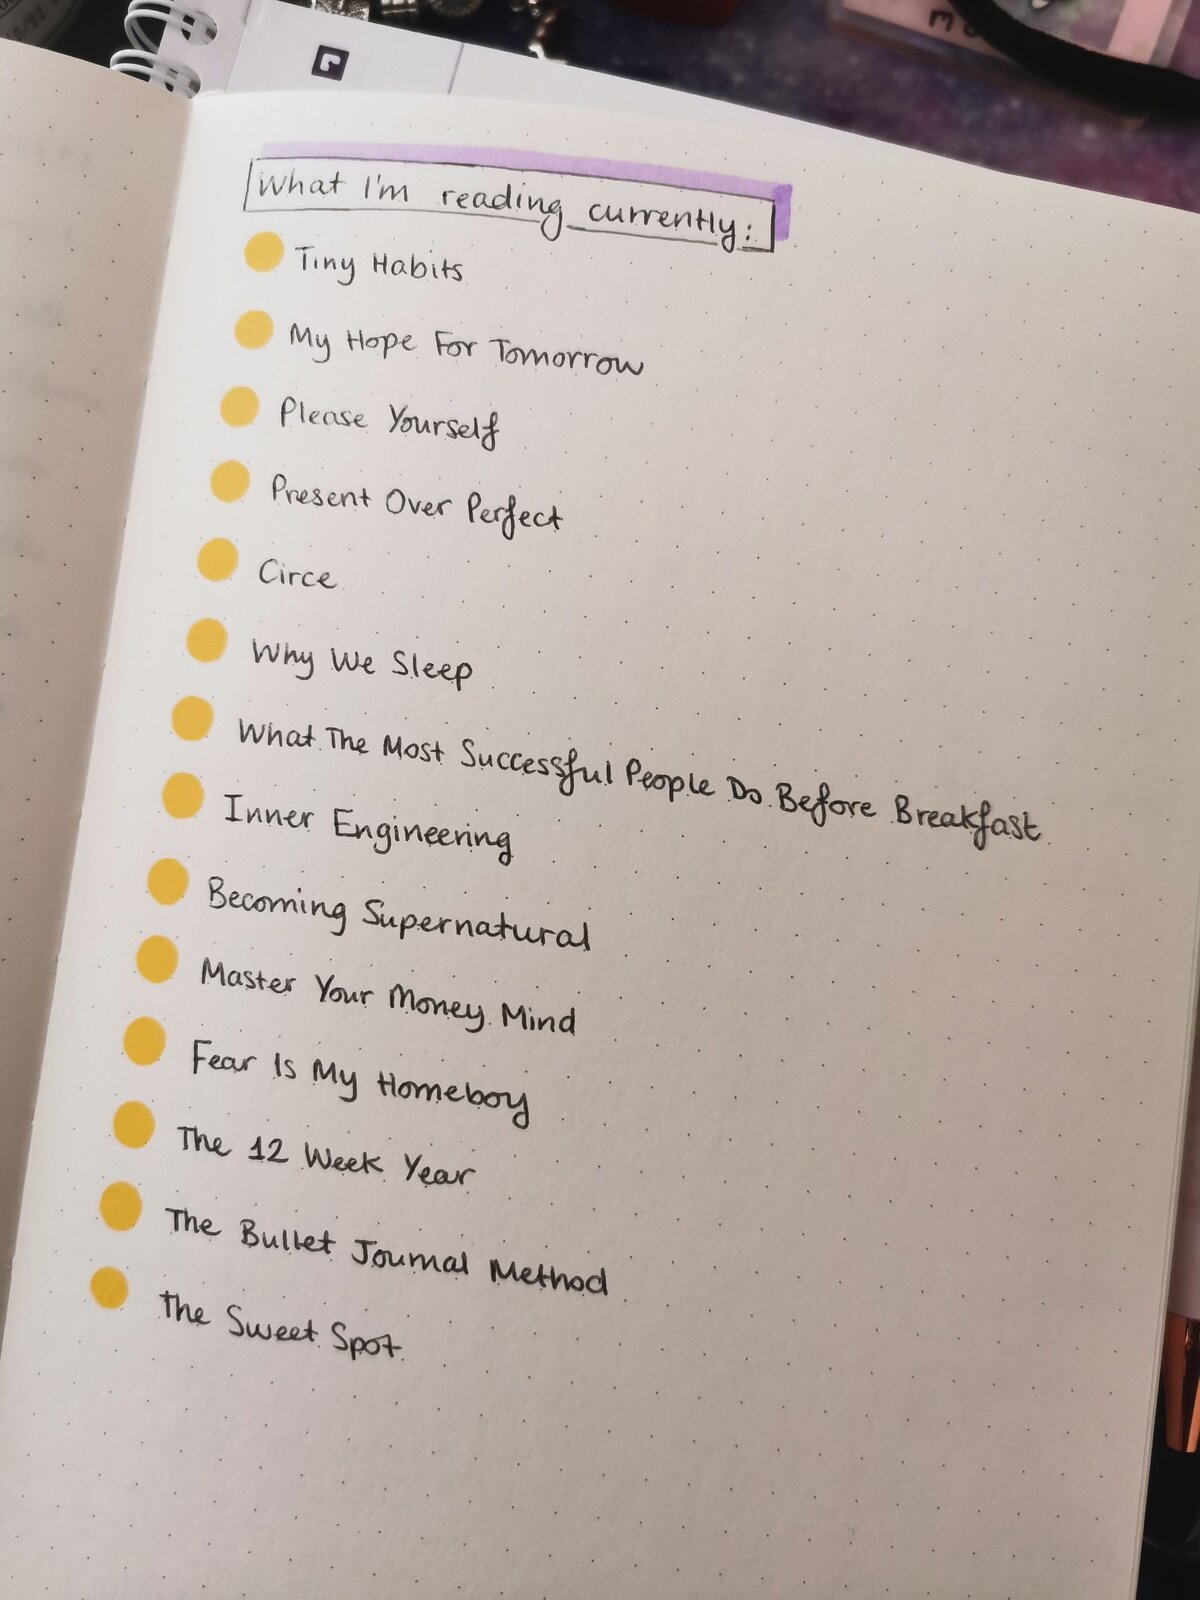 What I'm reading currently:
Tiny Habits
My Hope For Tomorrow
Please Yourself
Present Over Perfect
Circe
Why We Sleep
What The Most Successful People Do Before Breakfast
Inner Engineering
Becoming Supernatural
Master Your Money Mind
Fear Is My Homeboy
The 12 Week Year
The Bullet Journal Method
The Sweet Spot